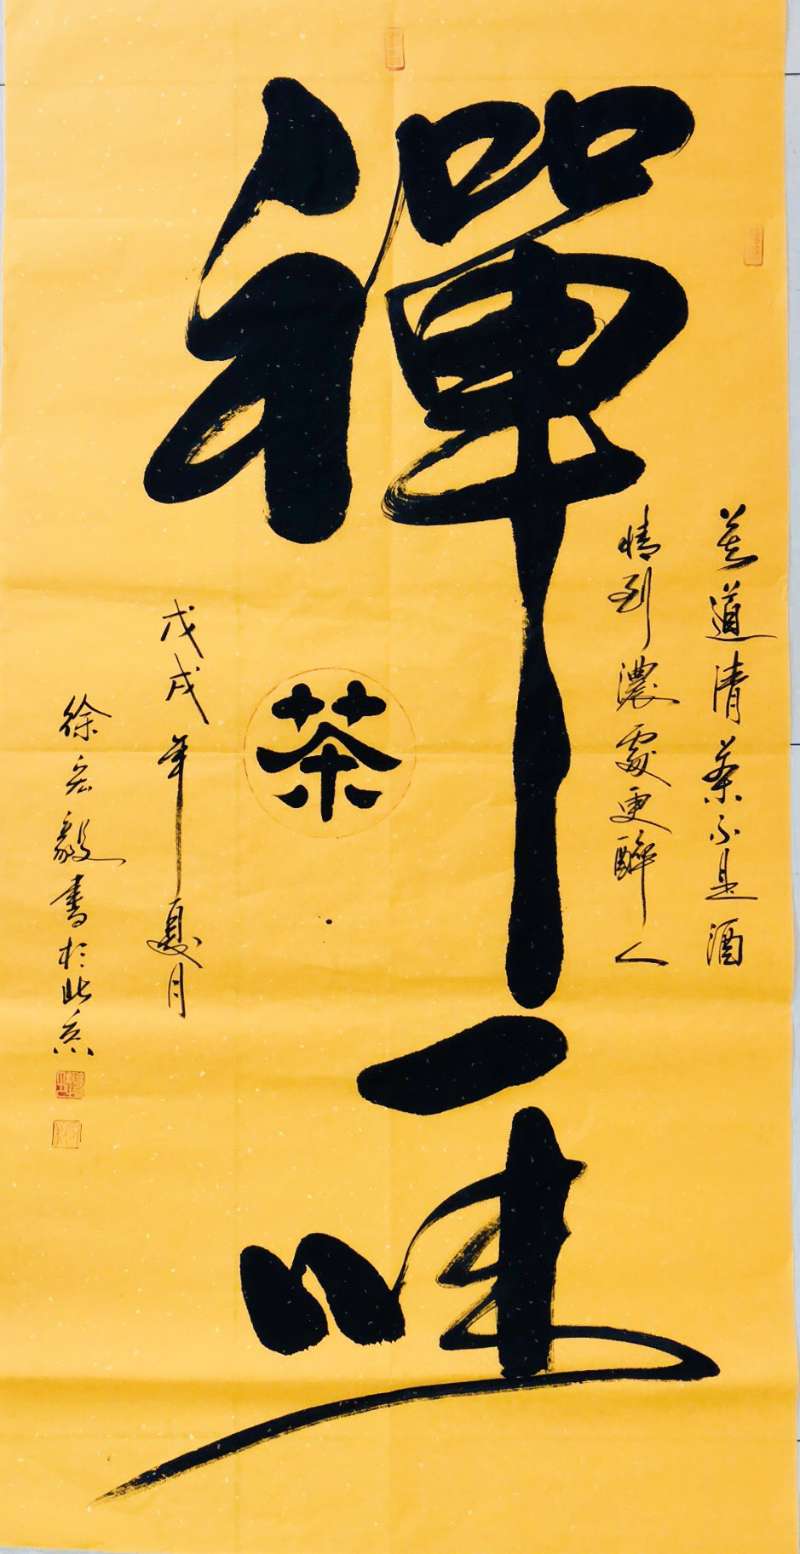 莫道清茶不是酒
情到濃處更醉人
禪茶一味
戊戌年夏月
徐宏毅書於北京